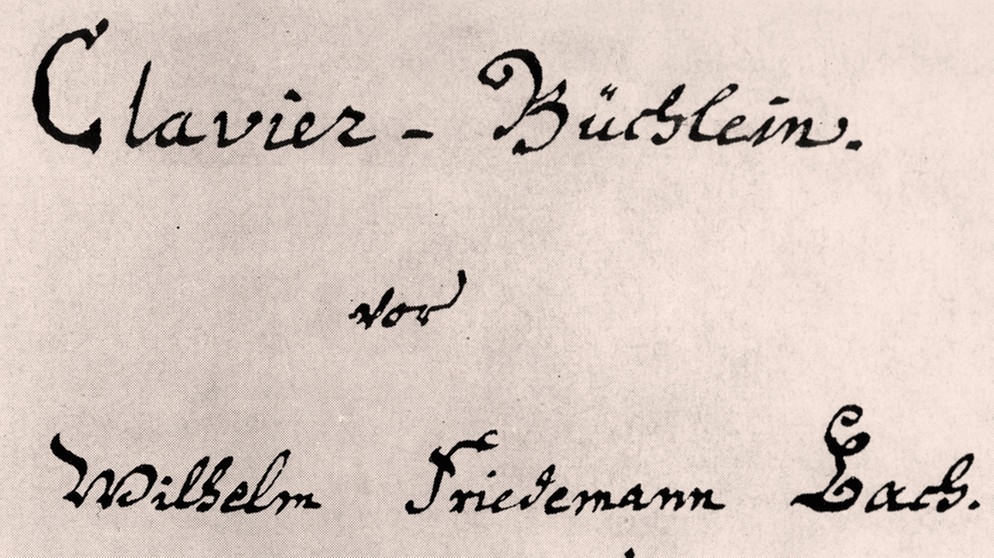 Clavier - Büchlein.
vor
Wilhelm Friedemann Bach.